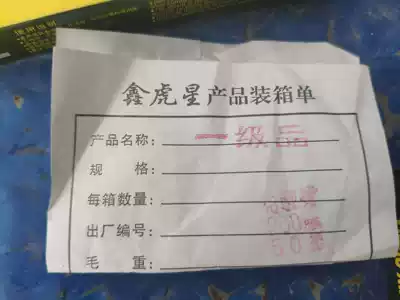 鑫虎星产品装箱单
产品名称：一级品
规　格：
每箱数量：
出厂编号：
毛　重：